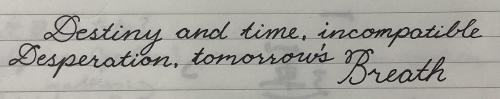 Destiny and time, incompatible
Desperation, tomorrow's Breath